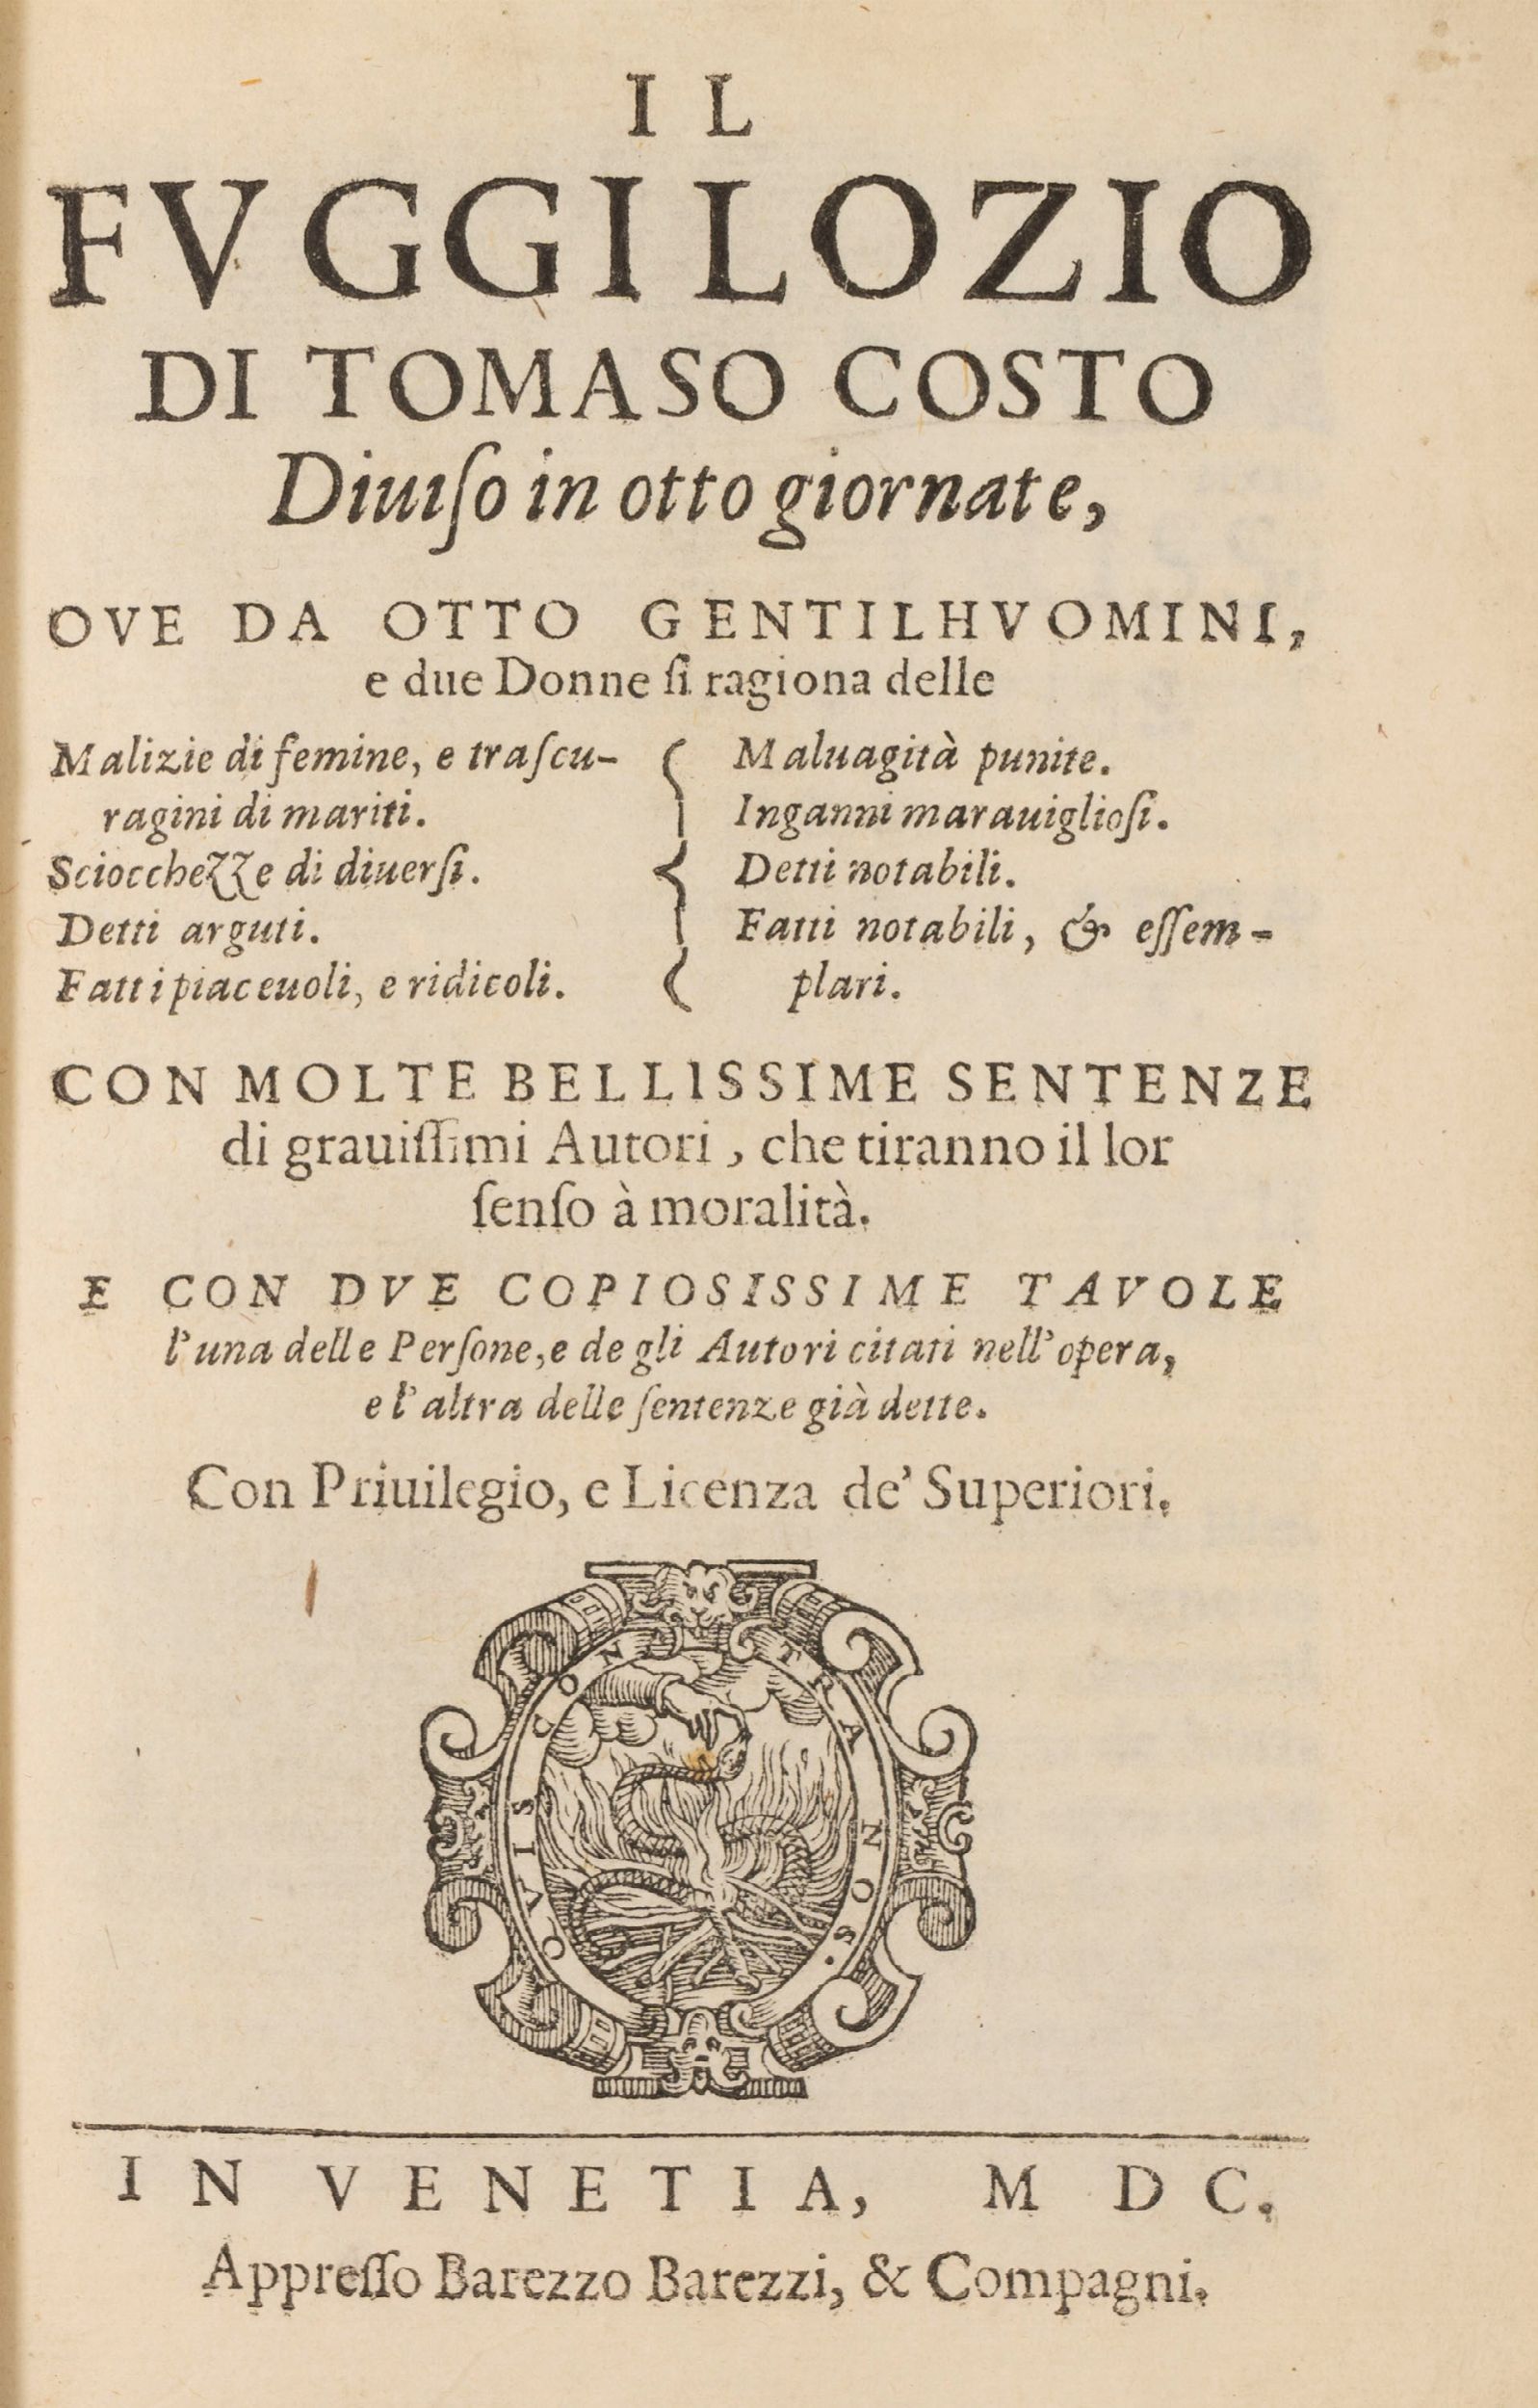 IL
FVGGILOZIO
DI TOMASO COSTO
Diuiſo in otto giornate,
OVE DA OTTO GENTILHVOMINI,
e due Donne ſi ragiona delle
Malizie di femine, e traſcu-
ragini di mariti.
Sciocchezze di diuerſi.
Detti arguti.
Fatti piaceuoli, e ridicoli.
Maluagità punite.
Inganni marauiglioſi.
Detti notabili.
Fatti notabili, & eſſem-
plari.
CON MOLTE BELLISSIME SENTENZE
di grauiſſimi Autori, che tiranno il lor
ſenſo à moralità.
E CON DVE COPIOSISSIME TAVOLE
l'una delle Perſone, e de gli Autori citati nell'opera,
e l'altra delle ſentenze già dette.
Con Priuilegio, e Licenza de' Superiori.
QVIS CON TRA NOS.
IN VENETIA, MDC.
Appreſſo Barezzo Barezzi, & Compagni.